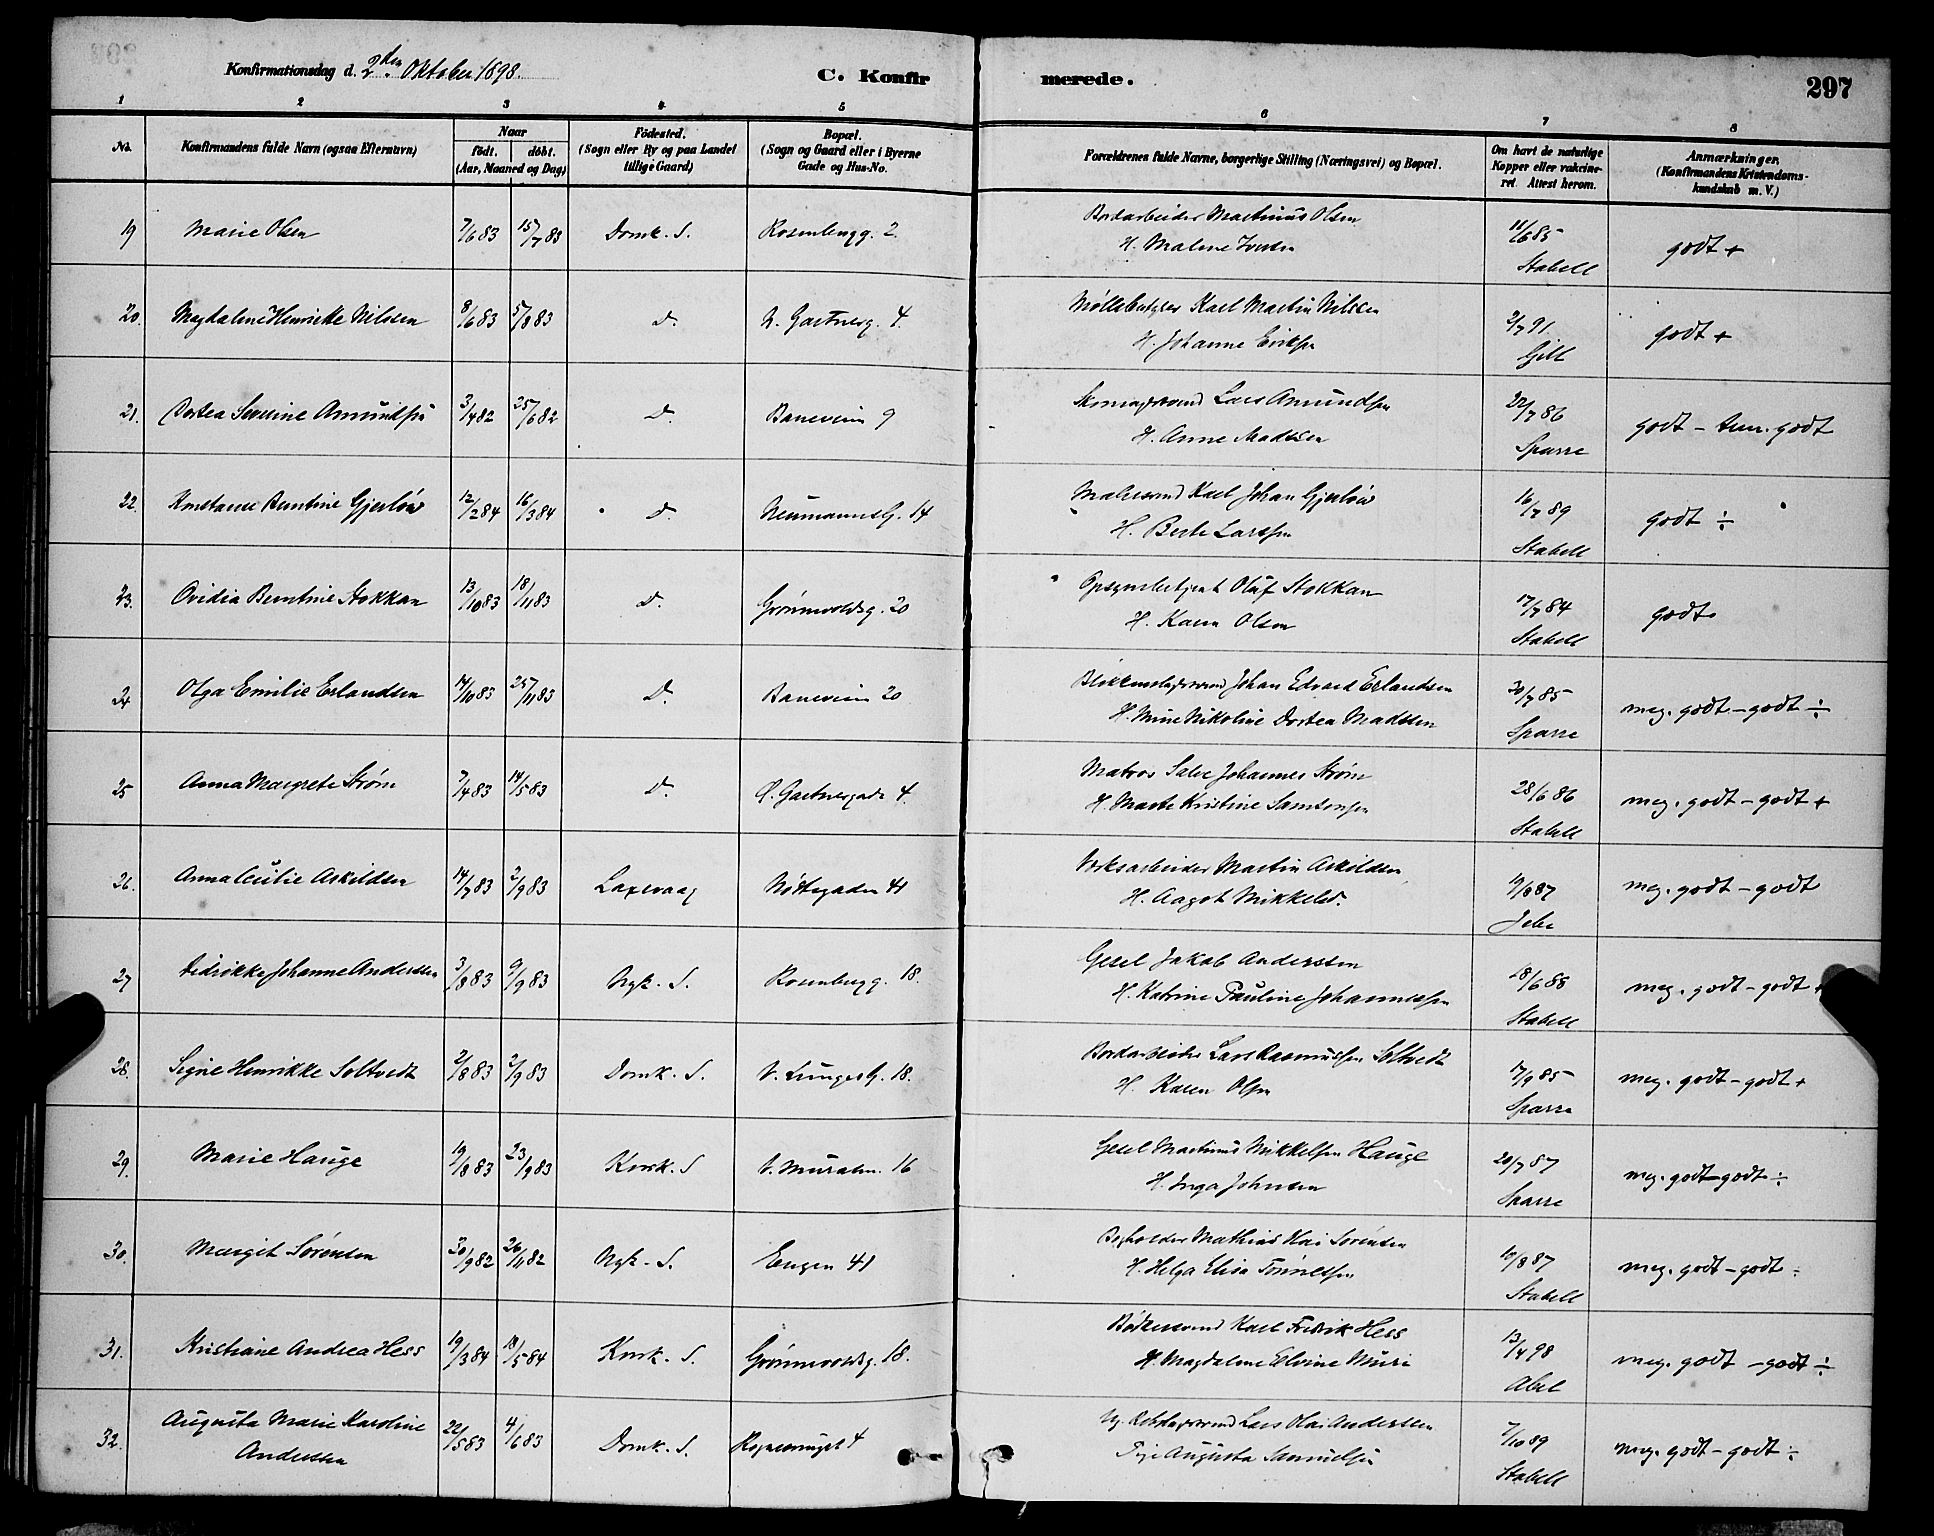 Konfirmationsdag d. 2den Oktober 1898.
C. Konfirmerede.
297
1 2 3 4 5 6 7 8
No. Konfirmandens fulde Navn (ogsaa Efternavn) Naar født. døbt. (Aar, Maaned og Dag) Fødested. (Sogn eller By og paa Landet tillige Gaard) Bopæl. (Sogn og Gaard eller i Byerne Gade og Hus-No. Forældrenes fulde Navne, borgerlige Stilling (Næringsvei) og Bopæl. Om havt de naturlige Kopper eller vakcineret. Attest herom. Anmærkninger. (Konfirmandens Kristendomskundskab m. V.)
19 Marie Olsen 7/6 83 15/7 83 Domk. S. Rosenbergg. 2. Bordarbeider Martinus Olsen
H. Malene Iversen 11/6 85 Stabell godt +
20. Magdalene Henrikke Nilssen 8/6 83 5/8 83 D. N. Gartnerg. 4. Karl Martin Nilssen
H. Johanne Eriksen 2/7 91. Gill godt +
21. Dortea Severine Amundsen 3/4 82 25/6 82 D. Baneveien 9 Skomagersvend Lars Amundsen
H. Anne Madssen 22/7 86 Sparre godt - tem. godt
22. Konstanse Berntine Gjerløw 12/2 84 16/3 84 D. Neumannsg. 14 Malersvend Karl Johan Gjerløw
H. Berte Larssen 16/7 89 Stabell godt ÷
23. Ovidia Berntine Stokkan 13/10 83 18/11 83 D. Grønnevoldsg. 20 Opsynsbetjent Oluf Stokkan
H. Karen Olsen 17/7 84 Stabell godt
24 Olga Emilie Erlandsen 14/10 83 25/11 83 D. Baneveien 20 Blikkenslagersvend Johan Edvard Erlandsen
H. Mine Nikoline Dortea Madssen 30/7 85 Sparre meg. godt - godt ÷
25 Anna Margrete Strøm 7/4 83 14/5 83 D. Ø. Gartnergade 4. Matros Salve Johannes Strøm
H. Marte Kristine Samsonsen 28/6 86 Stabell meg. godt - godt +
26. Anna Cecilie Askildsen 14/7 83 2/9 83 Laxevaag Nøstegaden 41 Værksarbeider Martin Askildsen
H. Aagot Mikkelsd. 19/8 87 Jebe meg. godt - godt
27 Didrikke Johanne Anderssen 3/8 83 9/9 83 Nyk. S. Rosenbergg. 18. Gesel Jakob Anderssen
H. Katrine Pauline Johannessen 18/6 88 Stabell meg. godt - godt +
28. Signe Henrikke Soltvedt 2/8 83 2/9 83 Domk. S. V. Lungeg. 18. Bordarbeider Lars Rasmussen Soltvedt
H. Karen Olsen 17/9 85 Sparre meg. godt - godt +
29. Marie Hauge 19/8 83 23/9 83 Korsk. S V. Muralm. 16 Gesel Martinus Mikkelsen Hauge
H. Inga Johnsen 20/7 87 Sparre meg. godt - godt ÷
30. Margit Sørensen 30/9 82 26/11 82 Nyk. S. Engen 41 Bogholder Mathias Kai Sørensen
H. Helga Elisa Tønnessen 10/8 87 Stabell meg. godt - godt ÷
31. Kristiane Andrea Hess 19/3 84 18/5 84 Korsk. S. Grønnevoldsg. 18. Bødkersvend Karl Fredrik Hess
H. Magdalene Elvine Muri 13/4 98 Abel meg. godt - godt ÷
32. Augusta Marie Karoline
Anderssen 22/5 83 4/6 83 Domk. S. 4 Lars Olai Anderssen
Pige Augusta Samuelsen 7/10 89 Stabell meg. godt - godt ÷